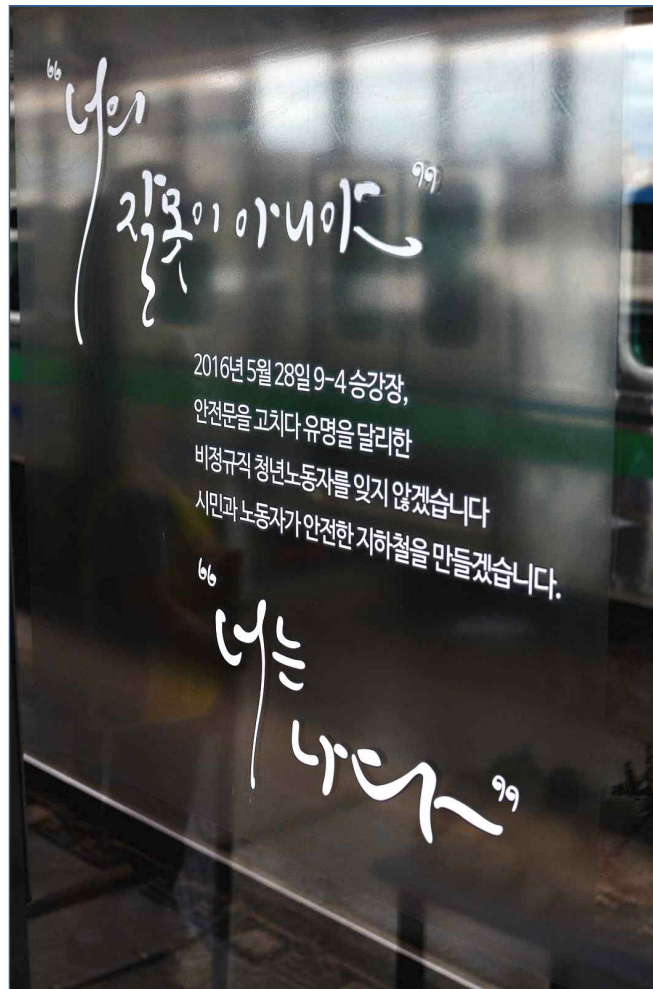 “너의
잘못이 아니야”
2016년 5월 28일 9-4 승강장,
안전문을 고치다 유명을 달리한
비정규직 청년노동자를 잊지 않겠습니다
시민과 노동자가 안전한 지하철을 만들겠습니다.
“너는
나다”